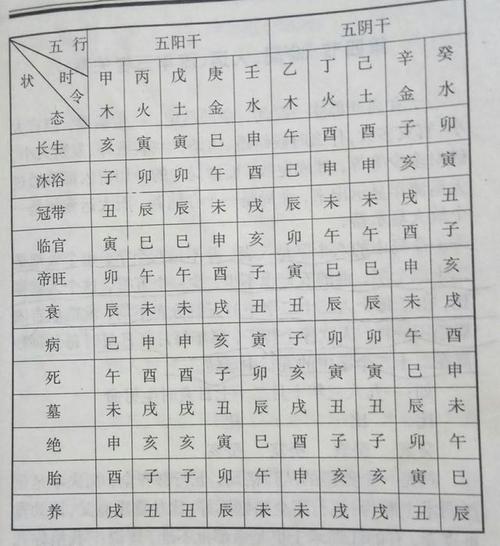 五行 五阳干 五阴干
时令
状态
甲木 丙火 戊土 庚金 壬水 乙木 丁火 己土 辛金 癸水
长生 亥 寅 寅 巳 申 午 酉 酉 子 卯
沐浴 子 卯 卯 午 酉 巳 申 申 亥 寅
冠带 丑 辰 辰 未 戌 辰 未 未 戌 丑
临官 寅 巳 巳 申 亥 卯 午 午 酉 子
帝旺 卯 午 午 酉 子 寅 巳 巳 申 亥
衰 辰 未 未 戌 丑 丑 辰 辰 未 戌
病 巳 申 申 亥 寅 子 卯 卯 午 酉
死 午 酉 酉 子 卯 亥 寅 寅 巳 申
墓 未 戌 戌 丑 辰 戌 丑 丑 辰 未
绝 申 亥 亥 寅 巳 酉 子 子 卯 午
胎 酉 子 子 卯 午 申 亥 亥 寅 巳
养 戌 丑 丑 辰 未 未 戌 戌 丑 辰